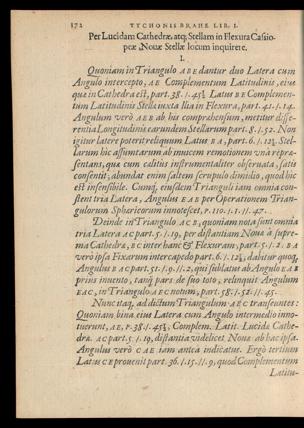 172 TYCHONIS BRAHE LIB. I.
Per Lucidam Cathedræ, atq; Stellam in Flexura Cassio-
peæ, Novæ Stellæ locum inquirere.
I.
Quoniam in Triangulo ABE dantur duo Latera cum
Angulo intercepto, AE Complementum Latitudinis, eius
quæ in Cathedra est, part. 38. /. Latus BE Complemen-
tum Latitudinis Stellæ iuxta Ilia in Flexura, part. 41. /. 14.
Angulum verò AEB ab his comprehensum, metitur diffe-
rentia Longitudinis earundem Stellarum part. 8. /. 52. Non
igitur latere poterit reliquum Latus BA, part. 6. /. Stel-
larum hic assumtarum ad invicem remotionem unà repræ-
sentans, quæ cum cælitus instrumentaliter observata, satis
consentit; abundat enim saltem scrupulo dimidio, quod hic
est insensibile. Cumq; eiusdem Trianguli iam omnia con-
stent tria Latera, Angulus EAB per Operationem Trian-
gulorum Sphæricorum innotescet, P. 110. /. 1. //. 47.
Deinde in Triangulo ACB, quoniam nota sunt omnia
tria Latera AC part. 5. /. 19, per distantiam Novæ à supre-
ma Cathedræ, BC inter hanc & Flexuram, part. 5. /. 2. BA
verò ipsa Fixarum intercapedo part. 6. /. dabitur quoq;
Angulus BAC part. 51. /. 9. //. 2, qui sublatus ab Angulo EAB
prius invento, tanq; pars de suo toto, relinquit Angulum
EAC, in Triangulo AEC notum, part. 58. /. 52. //. 45.
Nunc itaq; ad dictum Triangulum AEC transeuntes:
Quoniam bina eius Latera cum Angulo intermedio inno-
tuerunt, AE, P. 38. /. Complem. Latit. Lucidæ Cathe-
dræ. AC part. 5. /. 19, distantia videlicet Novæ ab hac ipsa.
Angulus verò CAE iam anteà indicatus. Ergò tertium
Latus CE provenit part. 36. /. 15. //. 9, quod Complementum
Latitu-